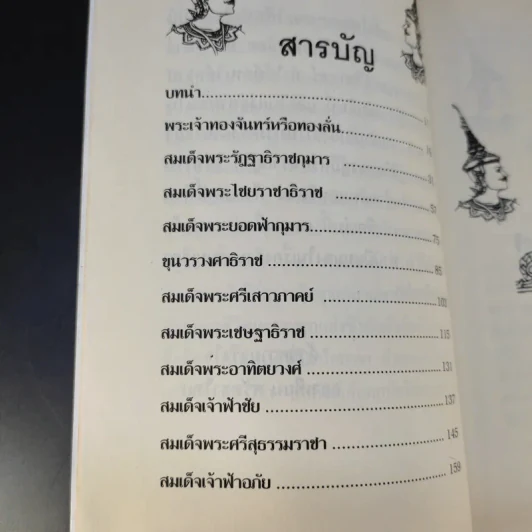 สารบัญ
บทนำ
พระเจ้าทองจันทร์หรือทองลั่น
สมเด็จพระรัฏฐาธิราชกุมาร
สมเด็จพระไชยราชาธิราช 57
สมเด็จพระยอดฟ้ากุมาร 75
ขุนวรวงศาธิราช 85
สมเด็จพระศรีเสาวภาคย์ 101
สมเด็จพระเชษฐาธิราช 115
สมเด็จพระอาทิตยวงศ์ 131
สมเด็จเจ้าฟ้าชัย 137
สมเด็จพระศรีสุธรรมราชา 145
สมเด็จเจ้าฟ้าอภัย 159